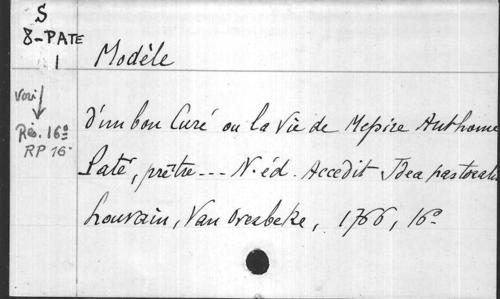 S
8-PATE
1
Modèle
voir
Rés. 16°
RP 16°
d'un bon Curé ou la Vie de Messire Anthoine
Paté, prêtre --- N. éd. Accedit Idea pastoralis
Louvain, Van Overbeke, 1766, 16°